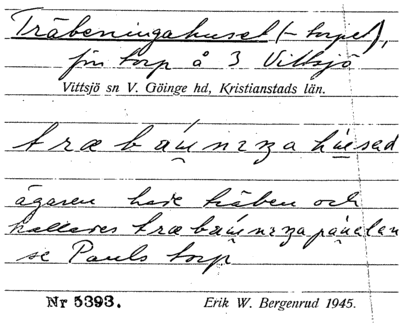 Träbeningahuset (- torpet),
fin torp å 3 Vittsjö
Vittsjö sn V. Göinge hd, Kristianstads län.
ägaren hade träben och
kallades
se Pauls torp
Nr 5393. Erik W. Bergenrud 1945.